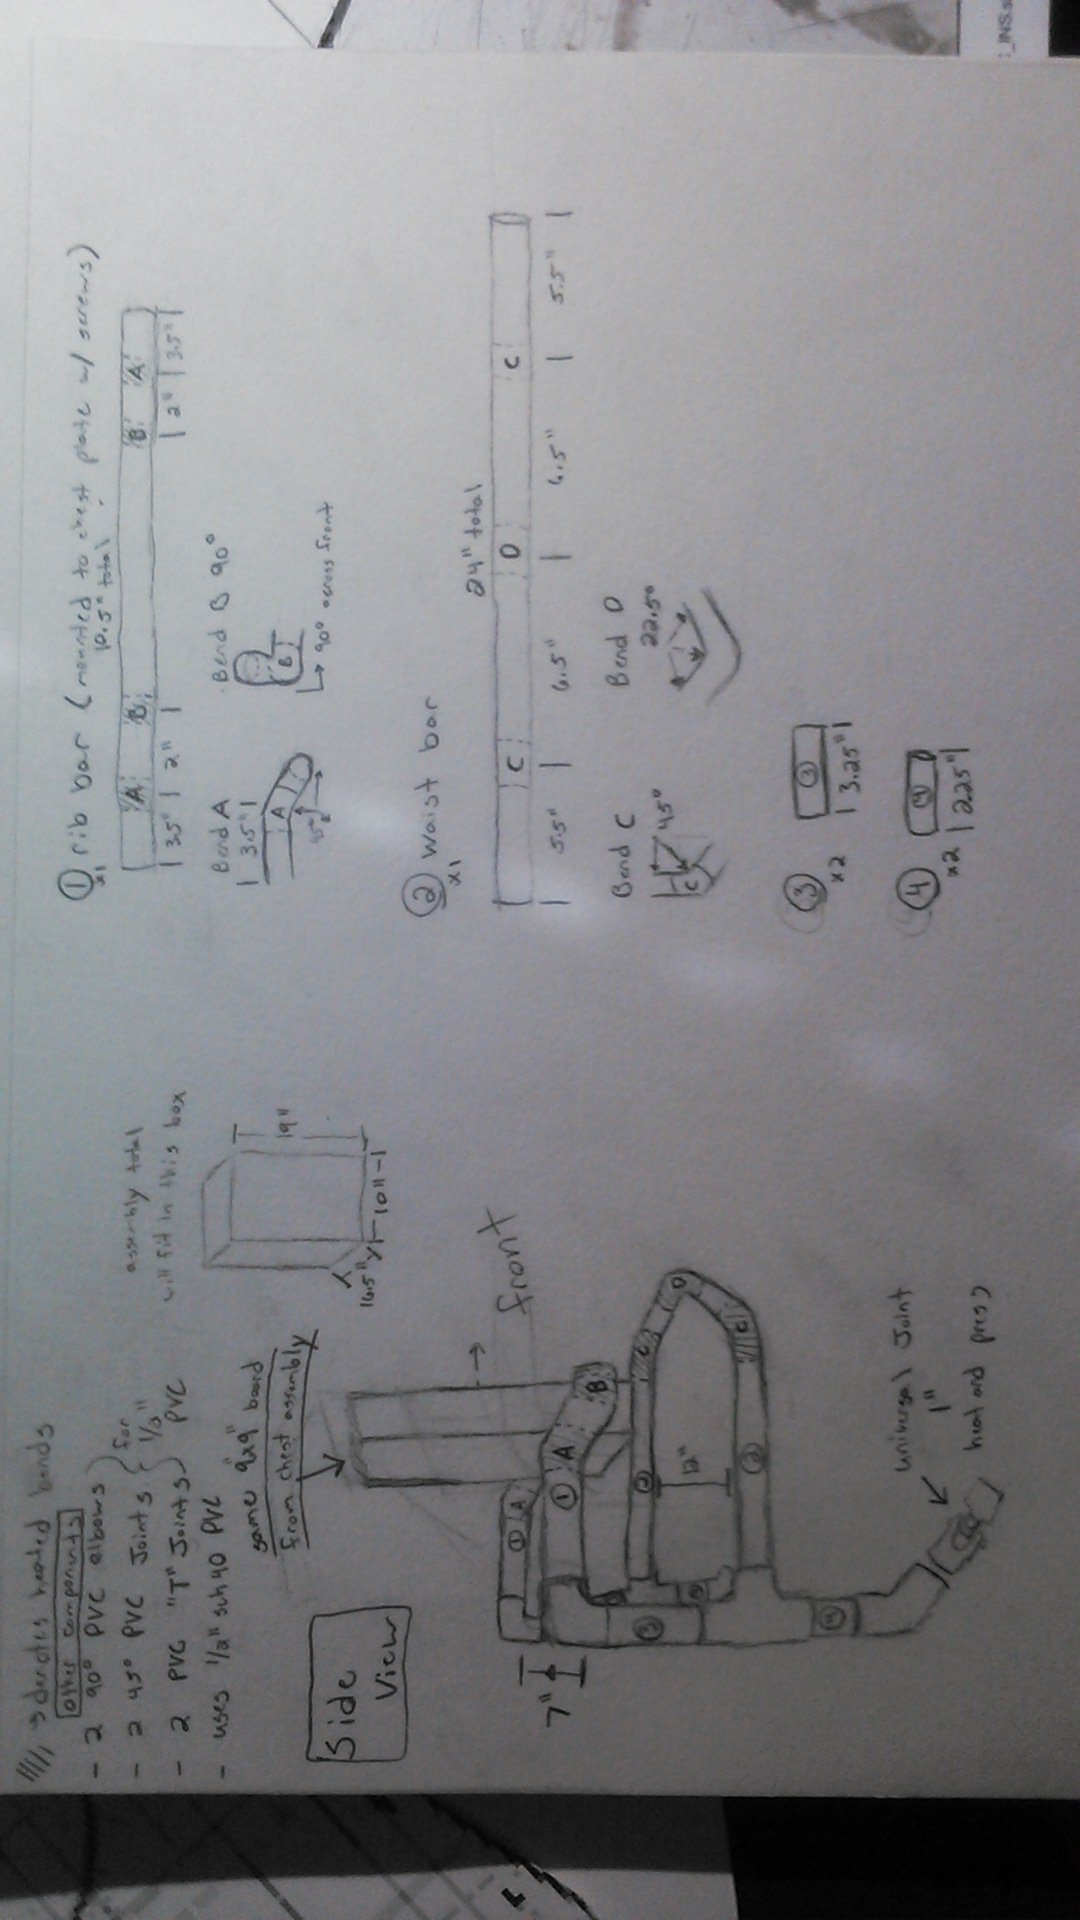 \\\\\ → denotes heated bends
other components
- 2 90° PVC elbows
- 2 45° PVC Joints
- 2 PVC "T" Joints
for
1/2"
PVC
- uses 1/2" sch 40 PVC
assembly total
will fit in this box
19"
16.5"
10"
same 9x9" board
from chest assembly
Side
View
front
7"
12"
1
A
1
A
B
2
C
D
C
2
3
4
universal Joint
1"
heat and press
① rib bar (mounted to chest plate w/ screws)
x1
total
A
B
B
A
3.5" 2"
2" 3.5"
Bend A
3.5"
A
45°
Bend B 90°
B
90° across front
② waist bar
x1
24" total
C
D
C
5.5" 6.5" 6.5" 5.5"
Bend C
C
45°
Bend D
22.5°
③
x2
3
3.25"
④
x2
4
2.25"
_INS.s